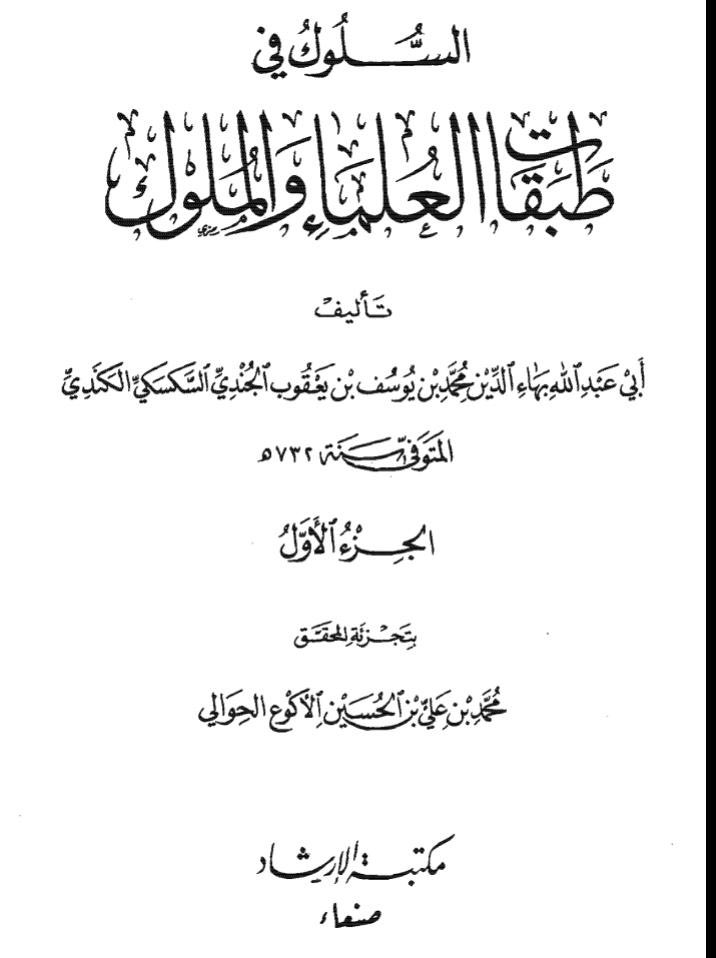 السُّلُوكُ في
طَبَقَاتِ العُلَمَاءِ وَالمُلُوكِ
تَأليفْ
أَبِيْ عَبْدِ اللهِ بَهَاءِ الدِّيْنِ مُحَمَّدِ بْنِ يُوسُف بْنِ يَعْقُوب الجُنْدِيِّ السَّكسَكيِّ الكَندِيِّ
المتَوَفَّىٰ سَنَة ٧٣٢هـ
الجُزْءُ الأَوَّلُ
بِتَجْزِئَةِ المحَقّق
مُحَمَّد بْنِ عَلِيّ بْنِ الحُسَيْنِ الأكوَع الحِوَالي
مكتبة الإرشاد
صنعاء